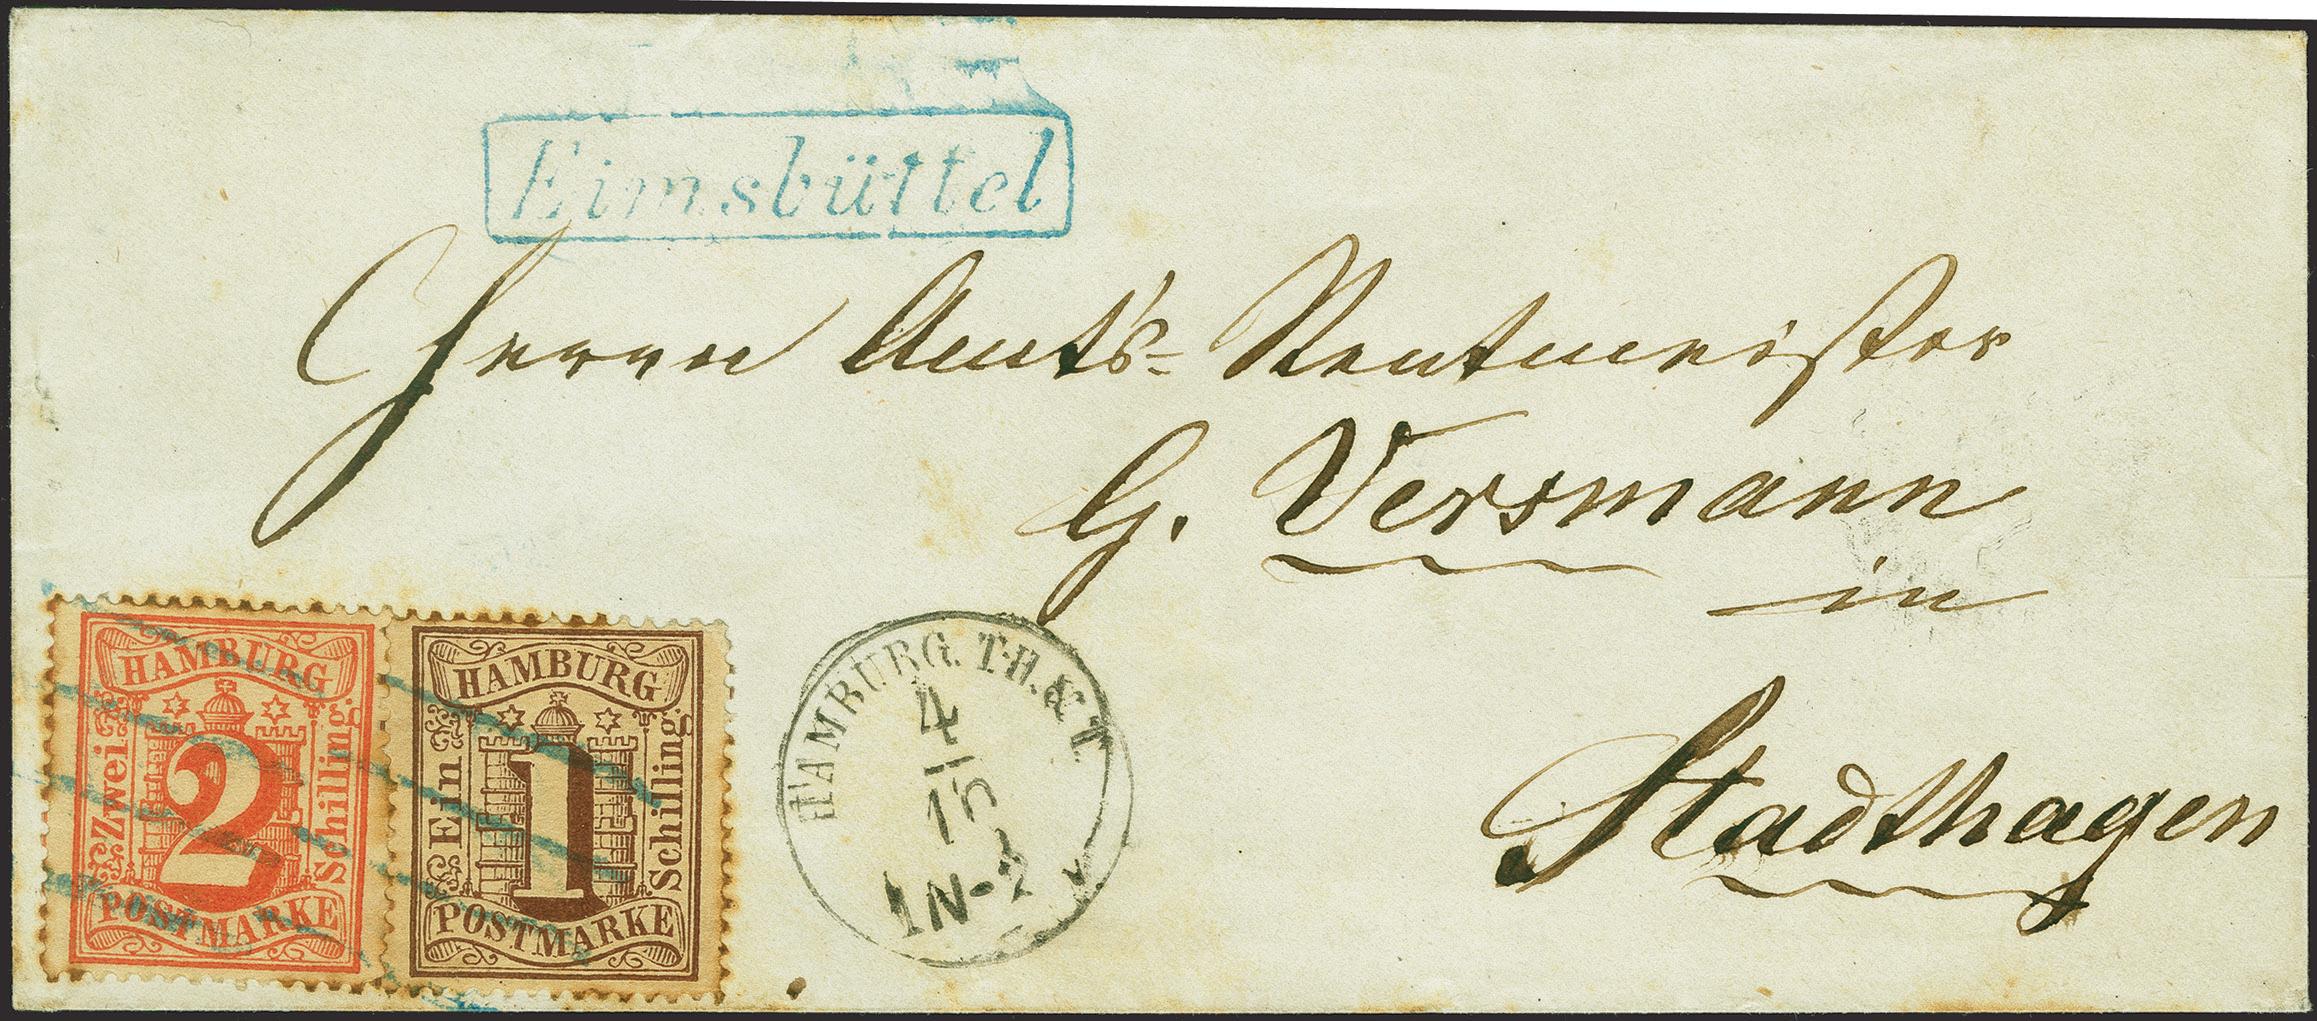 Eimsbüttel
Herrn Amts- Rentmeister
G. Versmann
in
Stadthagen
HAMBURG
Zwei
2
Schilling
POSTMARKE
HAMBURG
Ein
1
Schilling.
POSTMARKE
HAMBURG. TH. & T.
4
1N-2